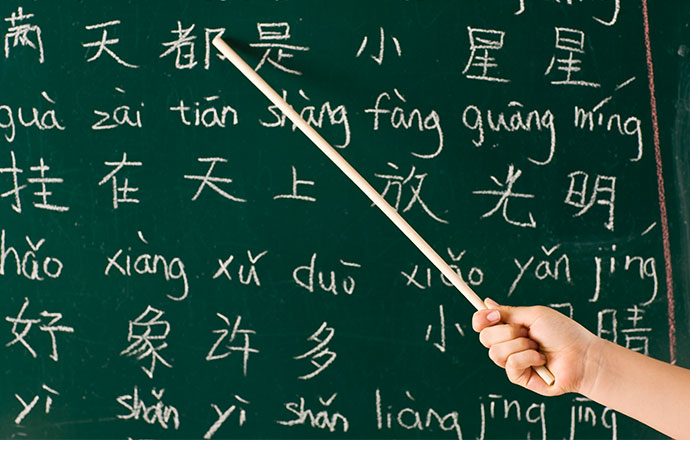 满 天 都 是 小 星 星
guà zài tiān shàng fàng guāng míng
挂 在 天 上 放 光 明
hǎo xiàng xǔ duō xiǎo yǎn jīng
好 象 许 多 小
yì shǎn yì shǎn liàng jīng jīng